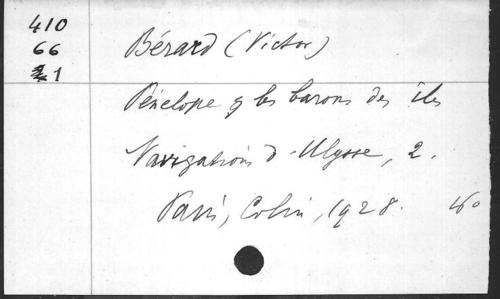 410
66
1
Bérard (Victor)
Pénélope & les barons des îles
Navigations d'Ulysse, 2.
Paris, Colin, 1928.